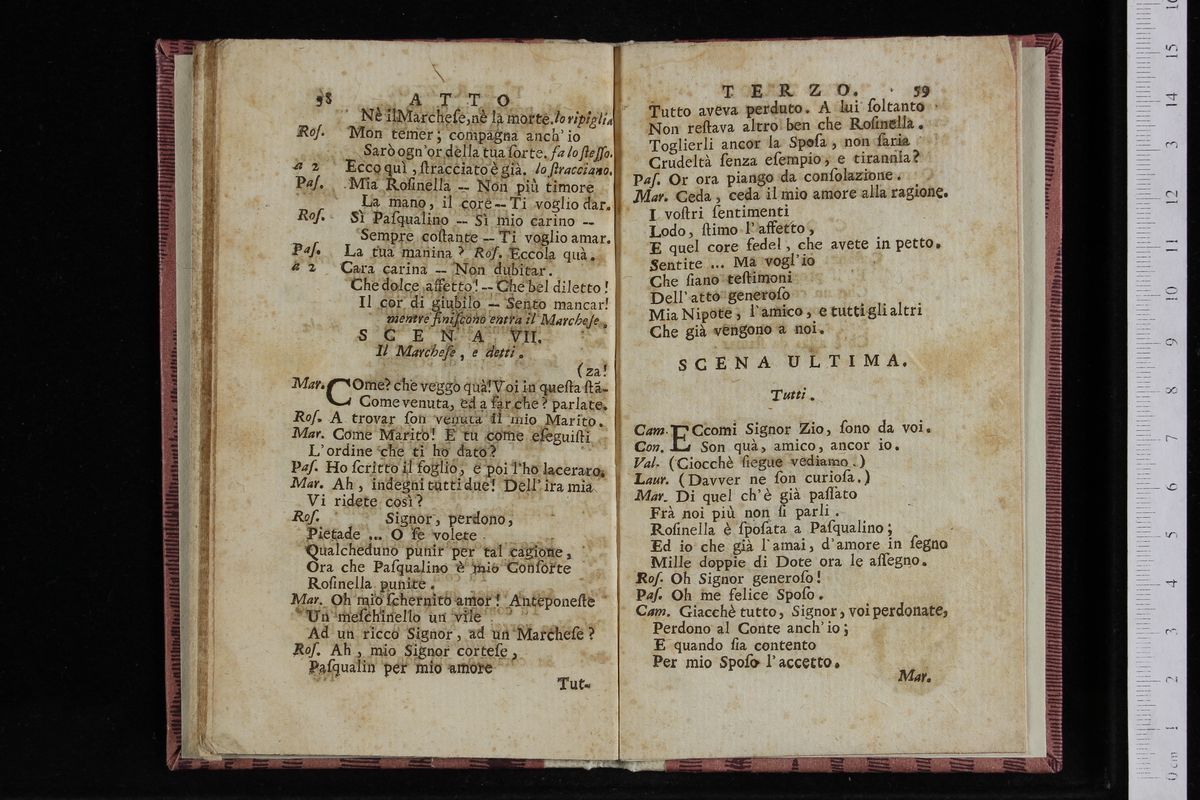 58 ATTO
Nè il Marcheſe, nè la morte. lo ripiglia
Roſ. Mon temer; compagna anch' io
Sarò ogn'or della tua ſorte. fa lo ſteſſo.
a 2 Ecco quì, ſtracciato è già. lo ſtracciano.
Paſ. Mia Roſinella — Non più timore
La mano, il core — Ti voglio dar.
Roſ. Sì Paſqualino — Sì mio carino —
Sempre coſtante — Ti voglio amar.
Paſ. La tua manina? Roſ. Eccola quà.
a 2 Cara carina — Non dubitar.
Che dolce affetto! — Che bel diletto!
Il cor di giubilo — Sento mancar!
mentre finiſcono entra il Marcheſe,
SCENA VII.
Il Marcheſe, e detti.
(za!
Mar. COme? che veggo quà! Voi in queſta ſtã-
Come venuta, ed a far che? parlate.
Roſ. A trovar ſon venuta il mio Marito.
Mar. Come Marito! E tu come eſeguiſti
L'ordine che ti ho dato?
Paſ. Ho ſcritto il foglio, e poi l'ho lacerato.
Mar. Ah, indegni tutti due! Dell' ira mia
Vi ridete così?
Roſ. Signor, perdono,
Pietade ... O ſe volete
Qualcheduno punir per tal cagione,
Ora che Paſqualino è mio Conſorte
Roſinella punite.
Mar. Oh mio ſchernito amor! Anteponeſte
Un meſchinello un vile
Ad un ricco Signor, ad un Marcheſe?
Roſ. Ah, mio Signor corteſe,
Paſqualin per mio amore
Tut-
TERZO. 59
Tutto aveva perduto. A lui ſoltanto
Non reſtava altro ben che Roſinella.
Toglierli ancor la Spoſa, non ſaria
Crudeltà ſenza eſempio, e tirannìa?
Paſ. Or ora piango da conſolazione.
Mar. Ceda, ceda il mio amore alla ragione.
I voſtri ſentimenti
Lodo, ſtimo l'affetto,
E quel core fedel, che avete in petto.
Sentite ... Ma vogl'io
Che ſiano teſtimoni
Dell'atto generoſo
Mia Nipote, l'amico, e tutti gli altri
Che già vengono a noi.
SCENA ULTIMA.
Tutti.
Cam. ECcomi Signor Zio, ſono da voi.
Con. Son quà, amico, ancor io.
Val. (Ciocchè ſiegue vediamo.)
Laur. (Davver ne ſon curioſa.)
Mar. Di quel ch'è già paſſato
Frà noi più non ſi parli.
Roſinella è ſpoſata a Paſqualino;
Ed io che già l'amai, d'amore in ſegno
Mille doppie di Dote ora le aſſegno.
Roſ. Oh Signor generoſo!
Paſ. Oh me felice Spoſo.
Cam. Giacchè tutto, Signor, voi perdonate,
Perdono al Conte anch'io;
E quando ſia contento
Per mio Spoſo l'accetto.
Mar.
0 cm 1 2 3 4 5 6 7 8 9 10 11 12 13 14 15 16